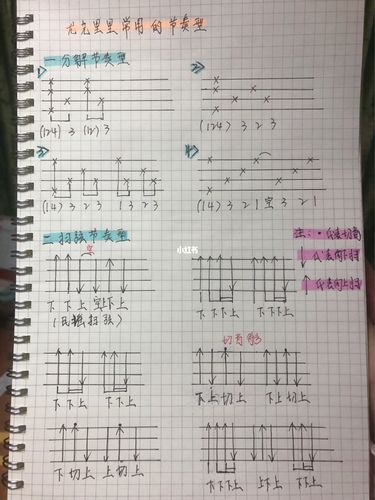 尤克里里常用的节奏型
一 分解节奏型
1> 2>
(124) 3 (12) 3 (124) 3 2 3
3> 4>
(14) 3 2 3 1 3 2 3 (14) 3 2 1 空 3 2 1
二 扫弦节奏型
空
下 下上 空上下上
(民谣扫弦)
下 下下上 下下下上
注:· 代表切音
↓ 代表向下扫
↑ 代表向上扫
小红书
下下上 下下上
切音
下上切上 下上切上
下切上 上切上
下下下上 上下上 下下上